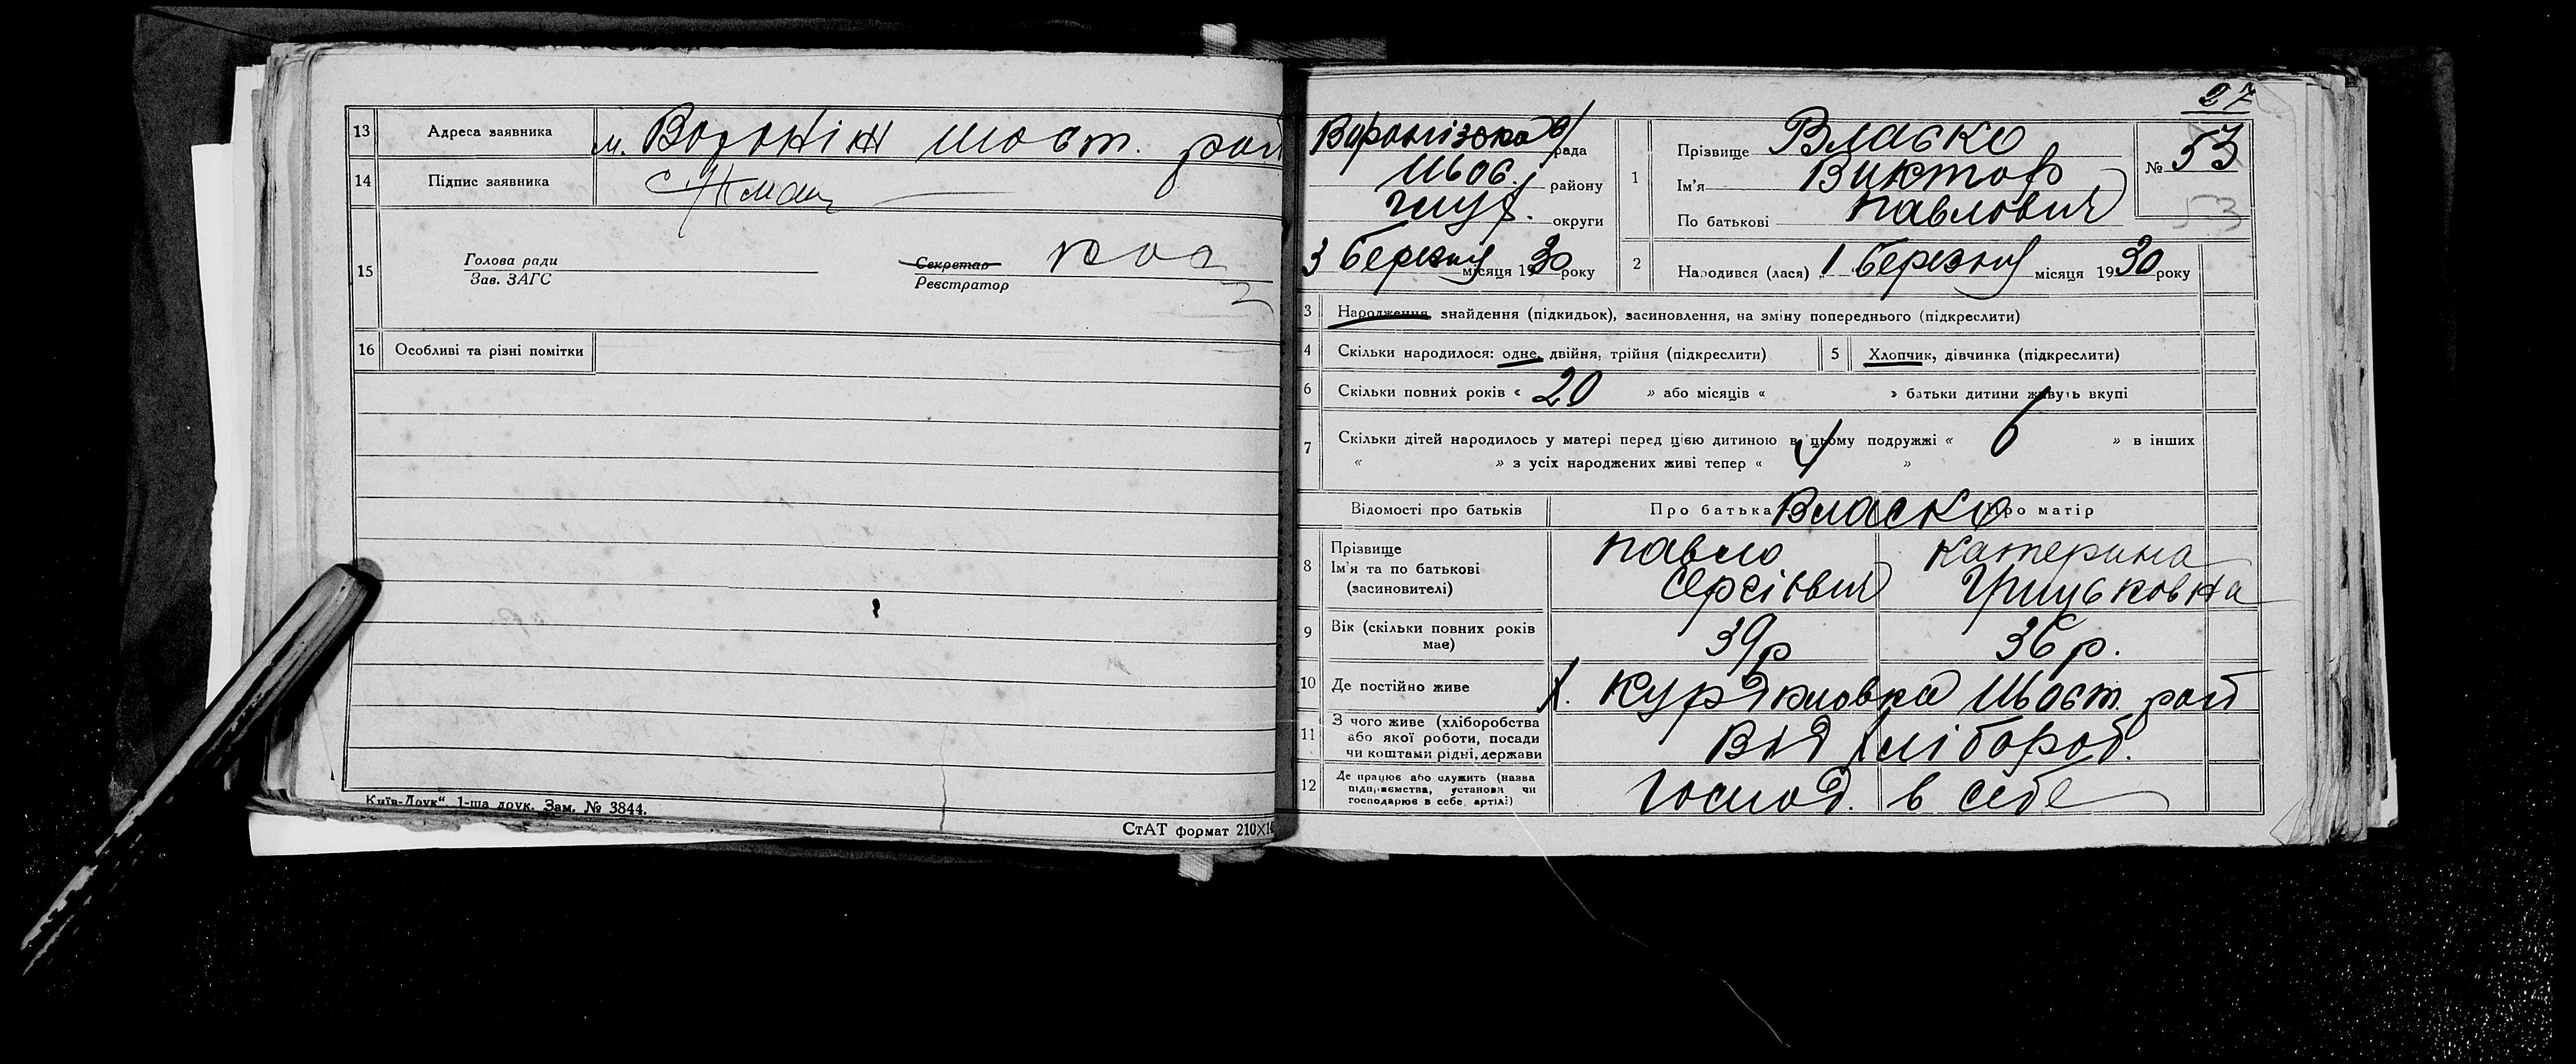 13 Адреса заявника м. Вороніж Шост. рай
14 Підпис заявника
15 Голова ради
Зав. ЗАГС
Секретар
Реєстратор
16 Особливі та різні помітки
Київ-Друк“, 1-ша друк. Зам. № 3844.
СтАТ формат 210×14
27
Воронізька рада
Шос. району
Глух. округи
3 березня місяця 1930 року
1 Прізвище Власко
Ім'я Виктор
По батькові Павлович
№ 53
53
2 Народився (лася) „1 березня місяця 1930 року
3 Народження, знайдення (підкидьок), засиновлення, на зміну попереднього (підкреслити)
4 Скільки народилося: одне, двійня, трійня (підкреслити)
5 Хлопчик, дівчинка (підкреслити)
6 Скільки повних років « 20 » або місяців « » батьки дитини живуть вкупі
7 Скільки дітей народилось у матері перед цією дитиною в цьому подружжі « 6 » в інших
« » з усіх народжених живі тепер « 4 »
Відомості про батьків Про батька Власко Про матір
8 Прізвище
Ім'я та по батькові
(засиновителі)
Павло
Сергієвич
Катерина
Грицьковна
9 Вік (скільки повних років має) 39 р 36 р.
10 Де постійно живе х. Шост. рай
11 З чого живе (хліборобства
або якої роботи, посади
чи коштами рідні, держави
Від хлібороб.
12 Де працює або служить (назва
підприємства, установи чи
господарює в себе, артілі)
Господ. в себе